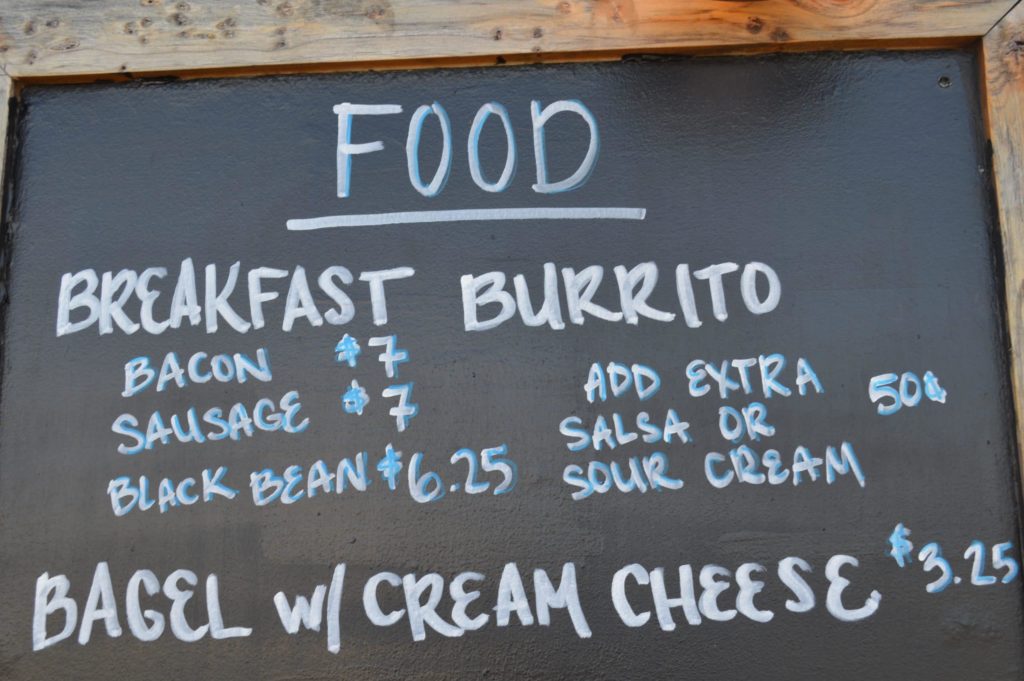 FOOD
BREAKFAST BURRITO
BACON $7
SAUSAGE $7
BLACK BEAN $6.25
ADD EXTRA 50¢
SALSA OR
SOUR CREAM
BAGEL w/ CREAM CHEESE $3.25